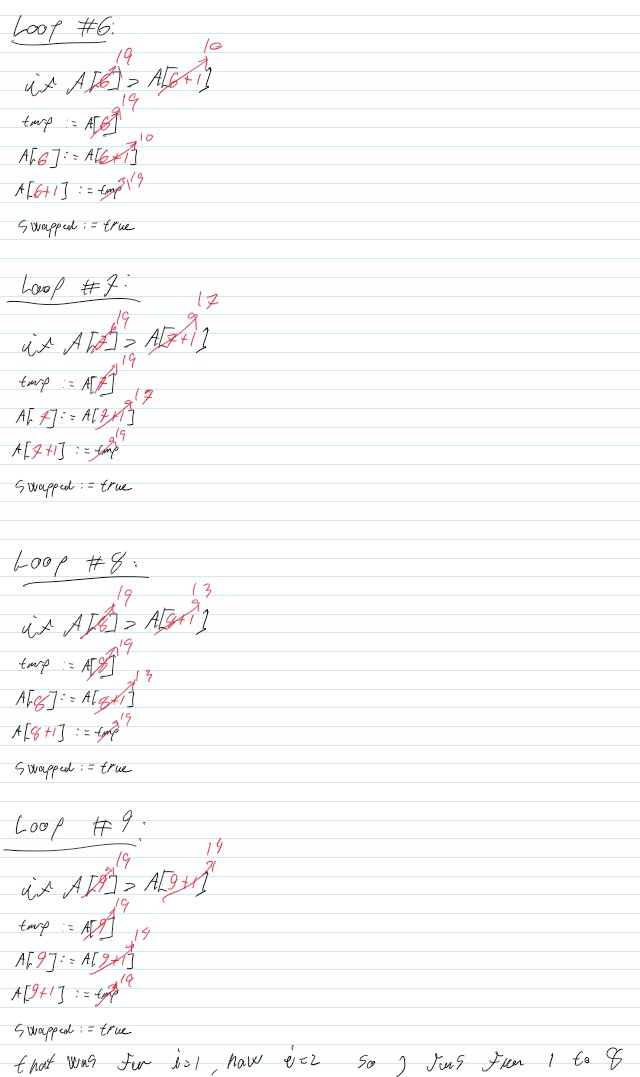 Loop #6:
19 10
if A[6] > A[6+1]
19
tmp := A[6]
10
A[6] := A[6+1]
A[6+1] := tmp 19
swapped := true
Loop #7:
17
19
if A[7] > A[7+1]
19
tmp := A[7]
17
A[7] := A[7+1]
19
A[7+1] := tmp
swapped := true
Loop #8:
19 13
if A[8] > A[8+1]
19
tmp := A[8]
13
A[8] := A[8+1]
19
A[8+1] := tmp
swapped := true
Loop #9:
14
19
if A[9] > A[9+1]
19
tmp := A[9]
14
A[9] := A[9+1]
19
A[9+1] := tmp
swapped := true
that was for i=1, now i=2 so j runs from 1 to 8